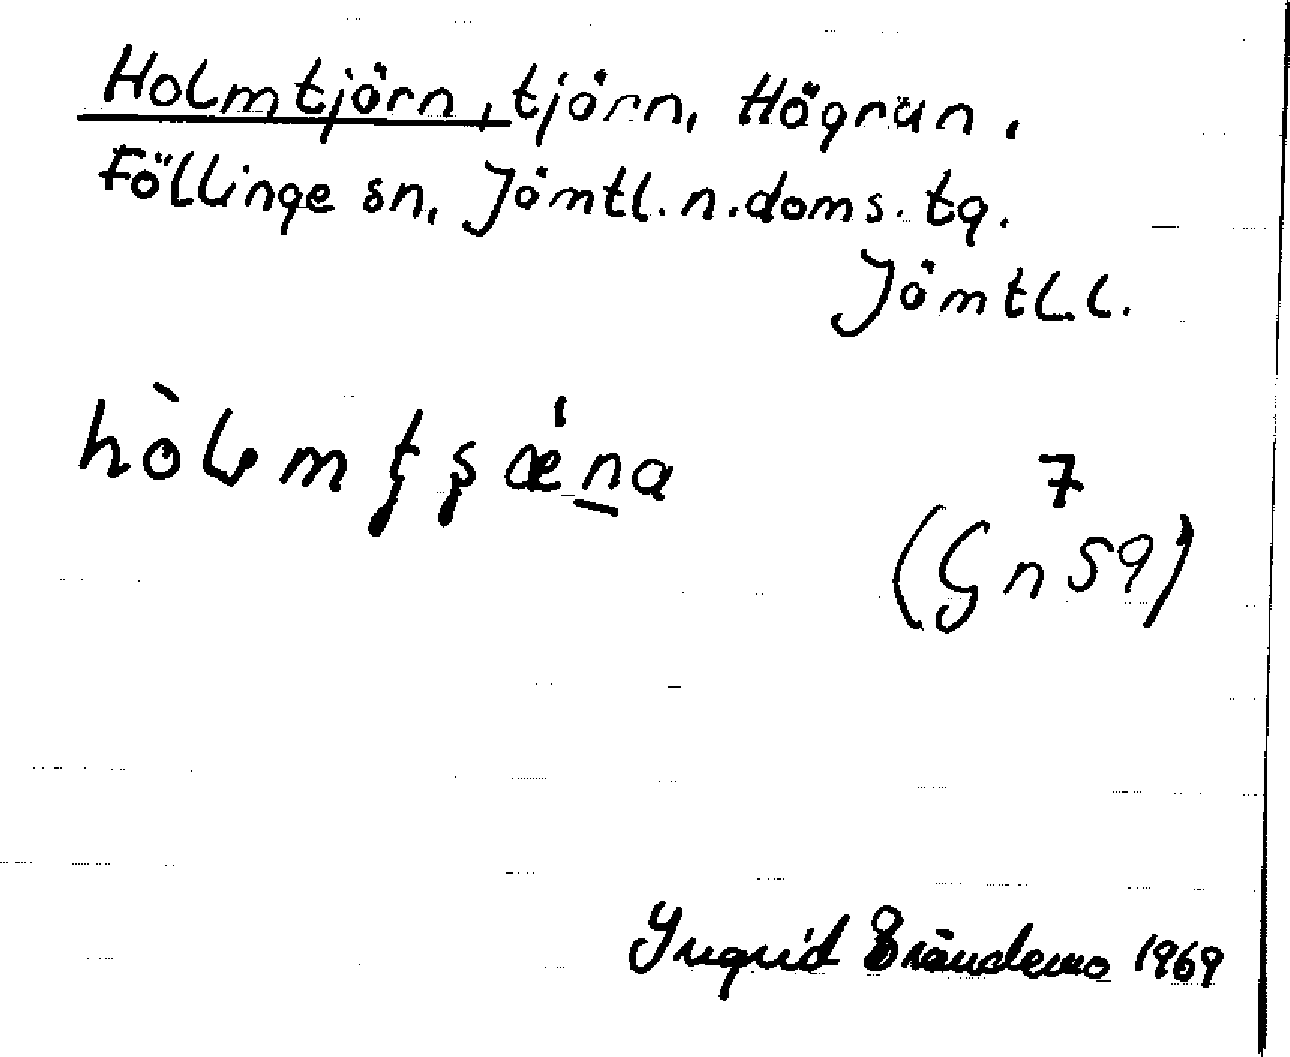 Holmtjärn, tjärn, Högrun.
Föllinge sn, Jämtl. n. doms. tg.
Jämtl. l.
7
(Gn 59)
Ingrid Brändemo 1969